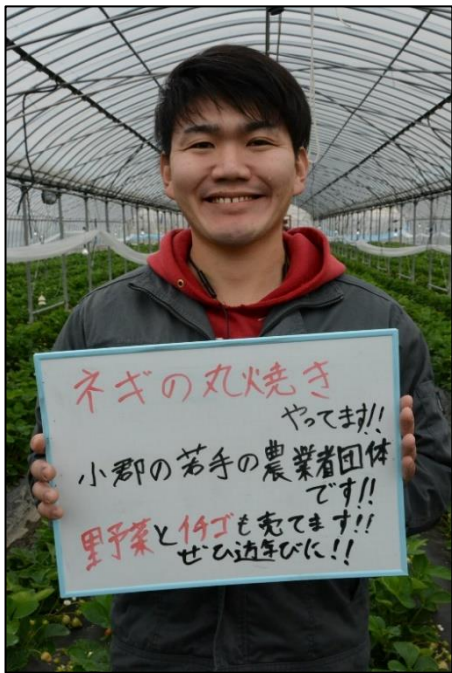 ネギの丸焼き
やってます!!
小郡の若手の農業者団体
です!!
野菜とイチゴも売てます!!
ぜひ遊びに!!